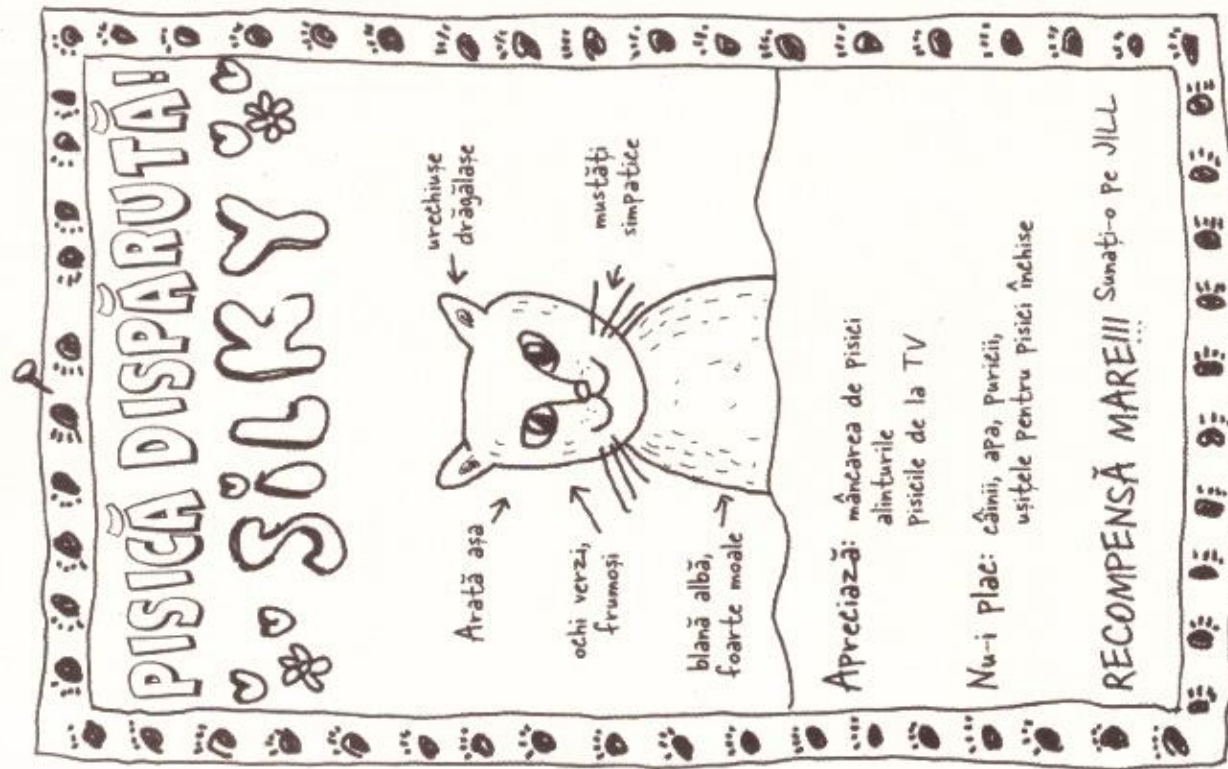 PISICĂ DISPĂRUTĂ!
SILKY
urechiușe
drăgălașe
Arată așa
ochi verzi,
frumoși
mustăți
simpatice
blană albă,
foarte moale
Apreciază: mâncarea de pisici
alinturile
pisicile de la TV
Nu-i plac: câinii, apa, puricii,
ușițele pentru pisici închise
RECOMPENSĂ MARE!!! Sunați-o pe JILL